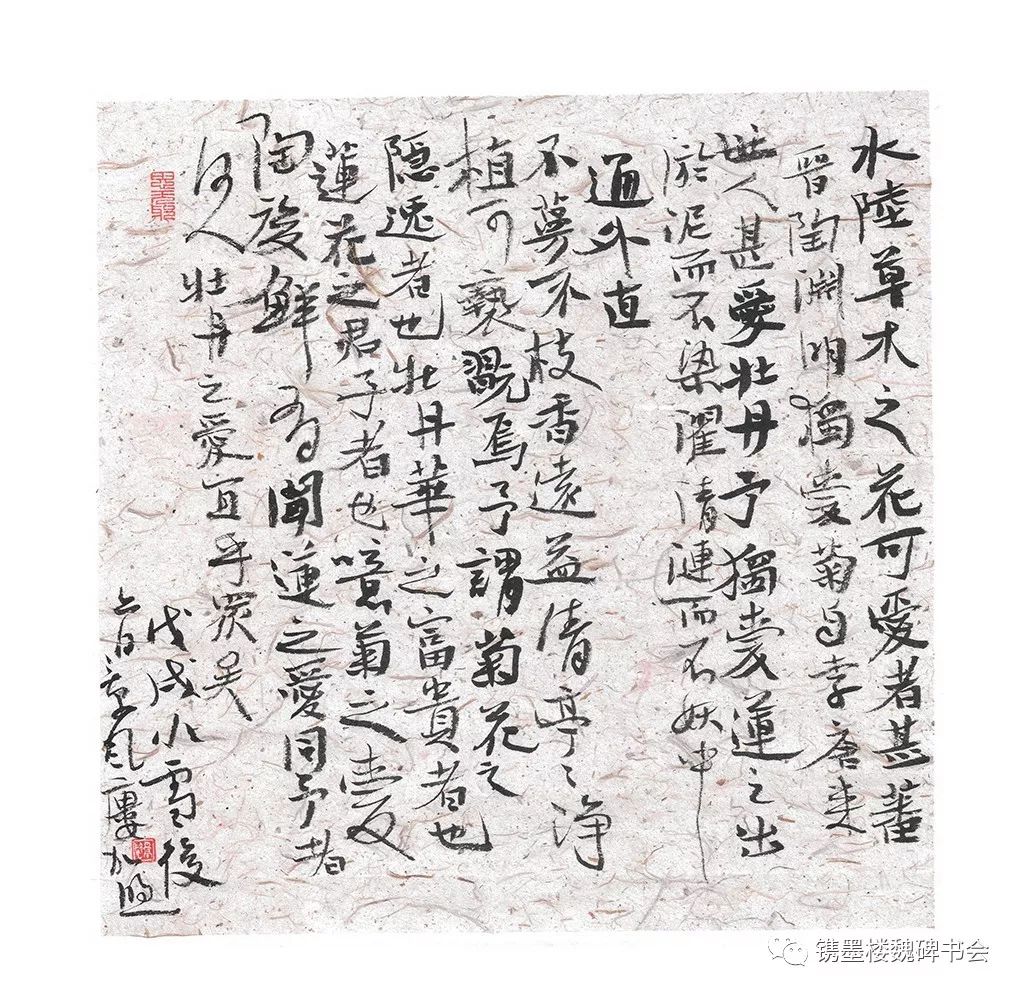 水陸草木之花可愛者甚蕃
晉陶淵明獨愛菊自李唐來
世人甚愛牡丹予獨愛蓮之出
淤泥而不染濯清漣而不妖中
通外直
不蔓不枝香遠益清亭々淨
植可褻翫焉予謂菊花之
隱逸者也牡丹華之富貴者也
蓮花之君子者也噫菊之愛
陶後鮮有聞蓮之愛同予者
何人牡丹之愛宜乎眾矣
戊戌小雪後
镌墨楼魏碑书会